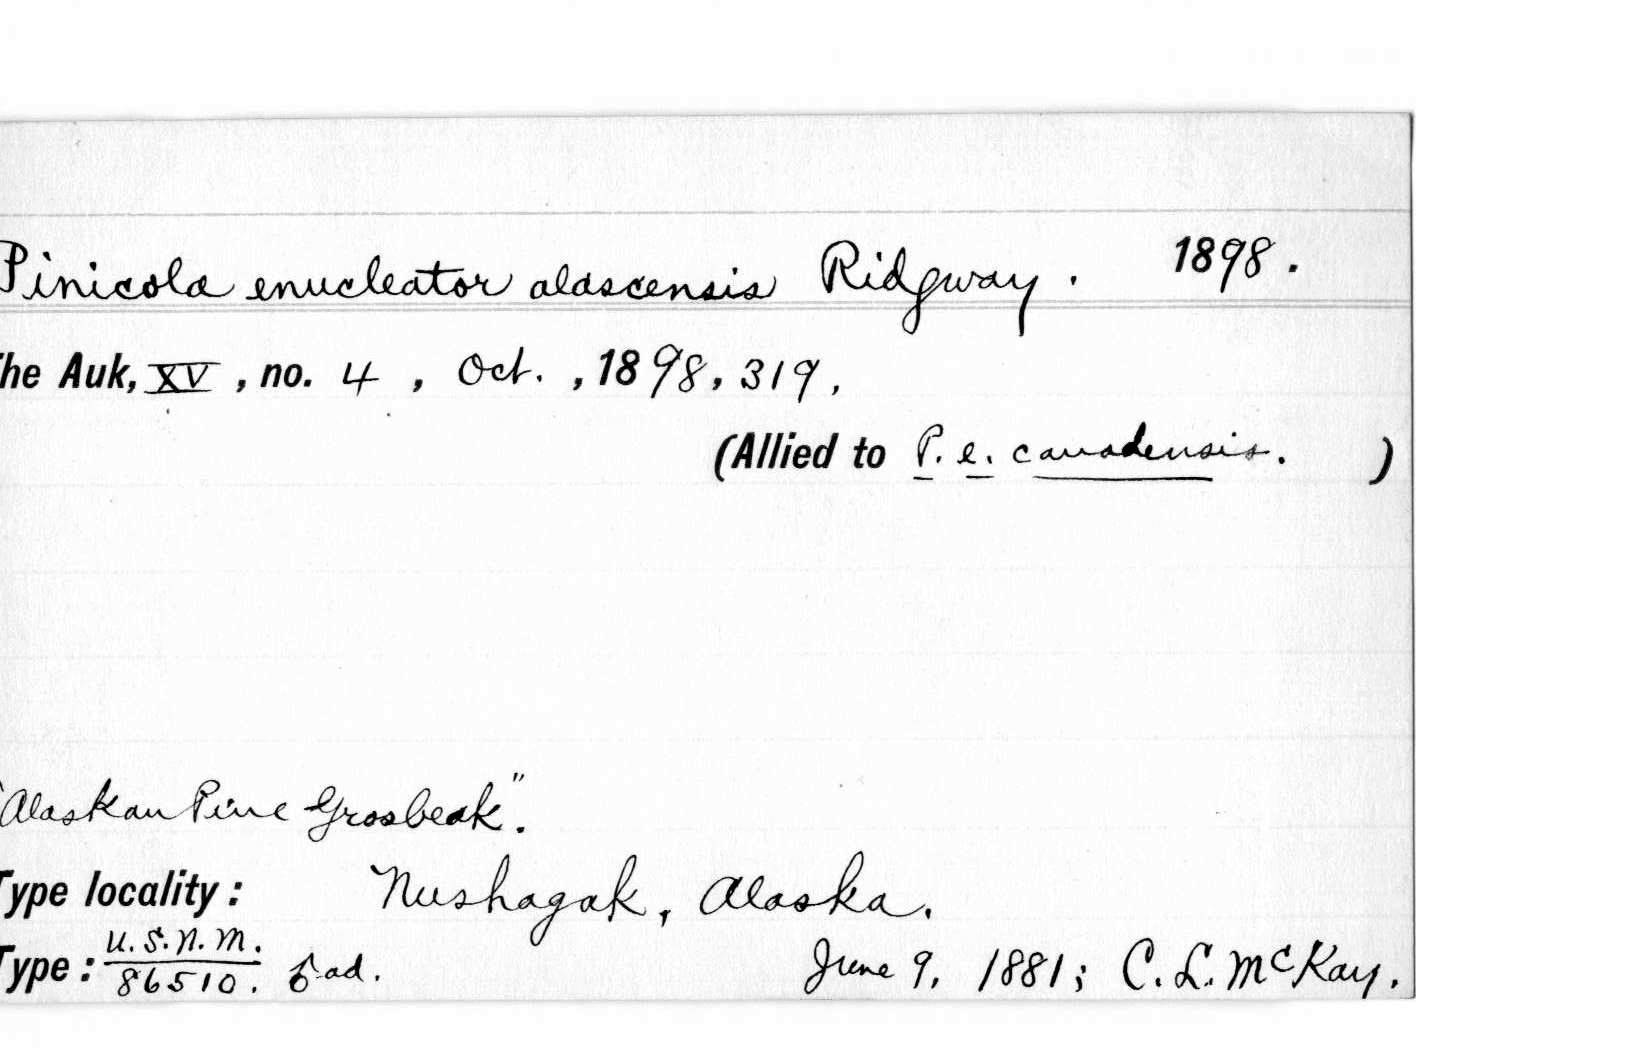 Pinicola enucleator alascensis Ridgway. 1898.
The Auk, XV, no. 4, Oct., 1898, 319,
(Allied to P. e. canadensis. )
"Alaskan Pine Grosbeak".
Type locality: Nushagak, Alaska.
Type: U.S.N.M. 86510. ♂ ad. June 9, 1881; C. L. McKay.